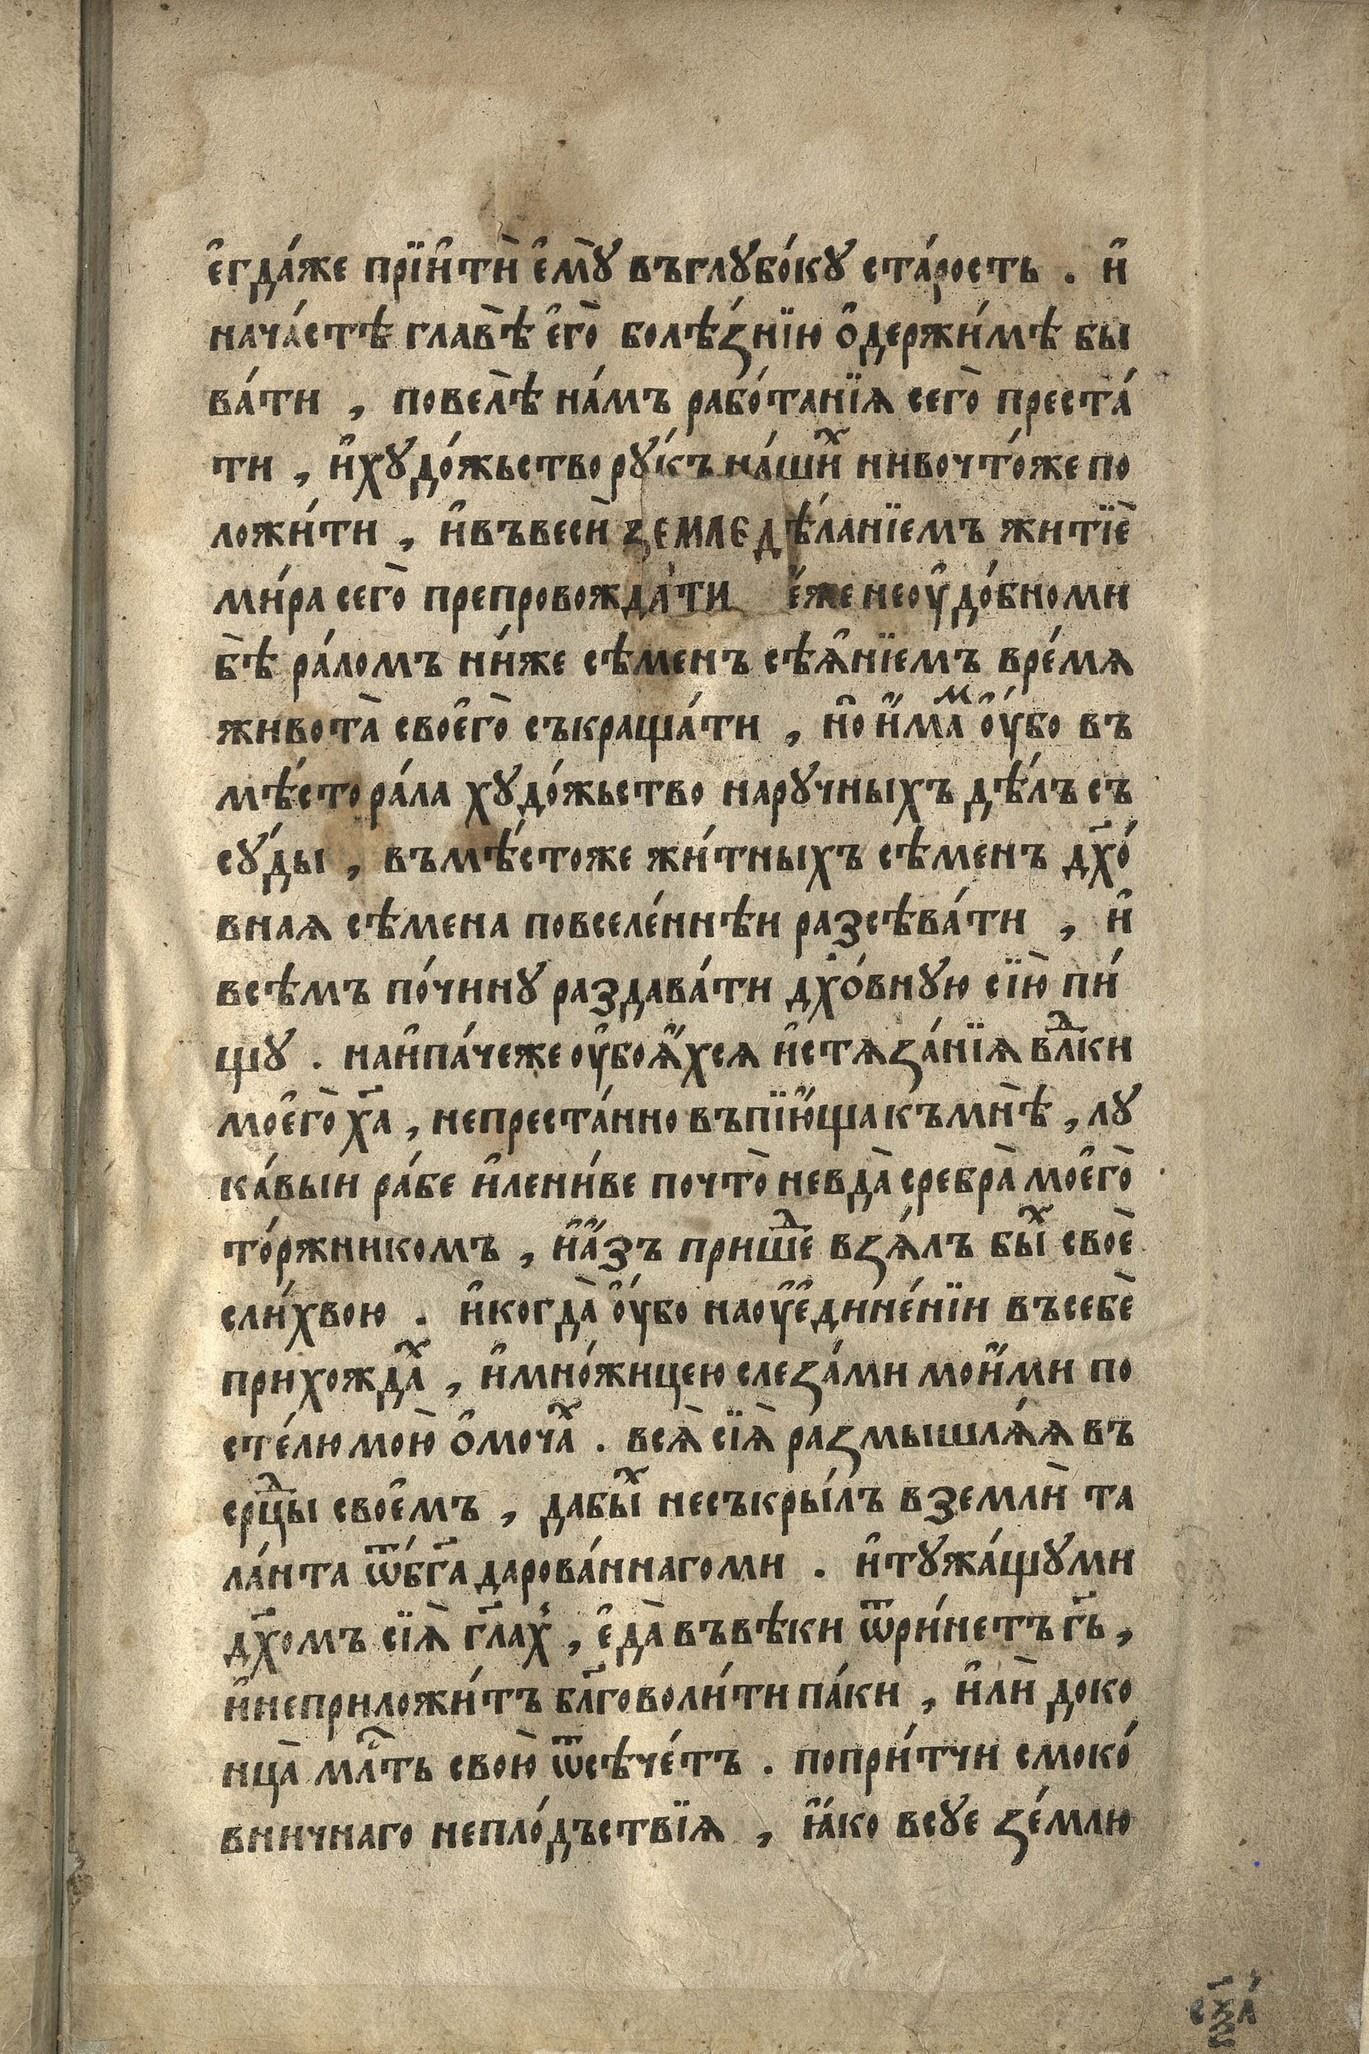 е҆гда́же прїи҆тѝ е҆мꙋ̀ въглꙋбо́кꙋ ста́рость . и҆
нача́стѣ главѣ̀ е҆гѡ̀ болѣ́ꙁнїю ѻ҆держи́мѣ бы
ва́ти , повелѣ̀ на́мъ рабо́танїѧ сегѡ̀ преста́
ти , и҆хꙋдо́жьство рꙋ́къ на́шиⷯ нивочто́же по
ложи́ти , и҆въвесѝ ꙁемледѣ́ланїемъ житїѐ
ми́ра сего̀ препровожда́ти е́же неоу҆до́бноми
бѣ̀ ра́ломъ ни́же сѣ́менъ сѣꙗ҆нїемъ вре́мѧ
живота̀ своє҆го̀ съкраща́ти , но̀ и҆маⷨ оу҆́бо въ
мѣ́сто ра́ла хꙋдо́жьство нарꙋчныхъ дѣ́лъ съ
сꙋ́ды , въмѣ́стоже жи́тныхъ сѣ́менъ дх҃о́
внаѧ сѣ́мена повселе́ннѣи разсѣва́ти , и҆
всѣ́мъ по́чинꙋ раздава́ти дх҃о́внꙋю сїю̀ пи́
щꙋ . наи҆па́чеже оу҆боꙗ҆́хсѧ и҆стѧꙁа́нїѧ влⷣки
моє҆го̀ ха҃ , непреста́нно въпїю҆́ща къмнѣ̀ , лꙋ
ка́выи ра́бе и҆лени́ве почто̀ невда̀ сребра̀ моє҆го̀
то́ржником , и҆а҆́зъ пришеⷣ вꙁѧ́лъ быⷯ своѐ
сли́хвою . и҆когда̀ оу҆́бо наоу҆е҆дине́нїи въсебѐ
прихождаⷯ , и҆мно́жицею слеꙁа́ми мои҆́ми по
сте́лю мою̀ ѻ҆мочаⷯ . всѧ̀ сїѧ̀ раꙁмышлѧ́ѧ въ
срⷣцы своє҆мъ , дабыⷯ несъкры́лъ вземлѝ та
ла́нта ѿбг҃а дарова́ннагоми . и҆тꙋжа́щꙋми
дх҃омъ сїѧ̀ гл҃ах̾ , е҆да̀ въвѣ́ки ѿри́нетъ гь҃ ,
и҆неприложи́тъ бл҃говоли́ти па́ки , и҆лѝ доко
нца̀ млⷭ҇ть свою̀ ѿсѣче́тъ . попри́тчи смоко́
вничнаго непло́дъствїѧ , ꙗ҆́ко всꙋе ꙁе́млю